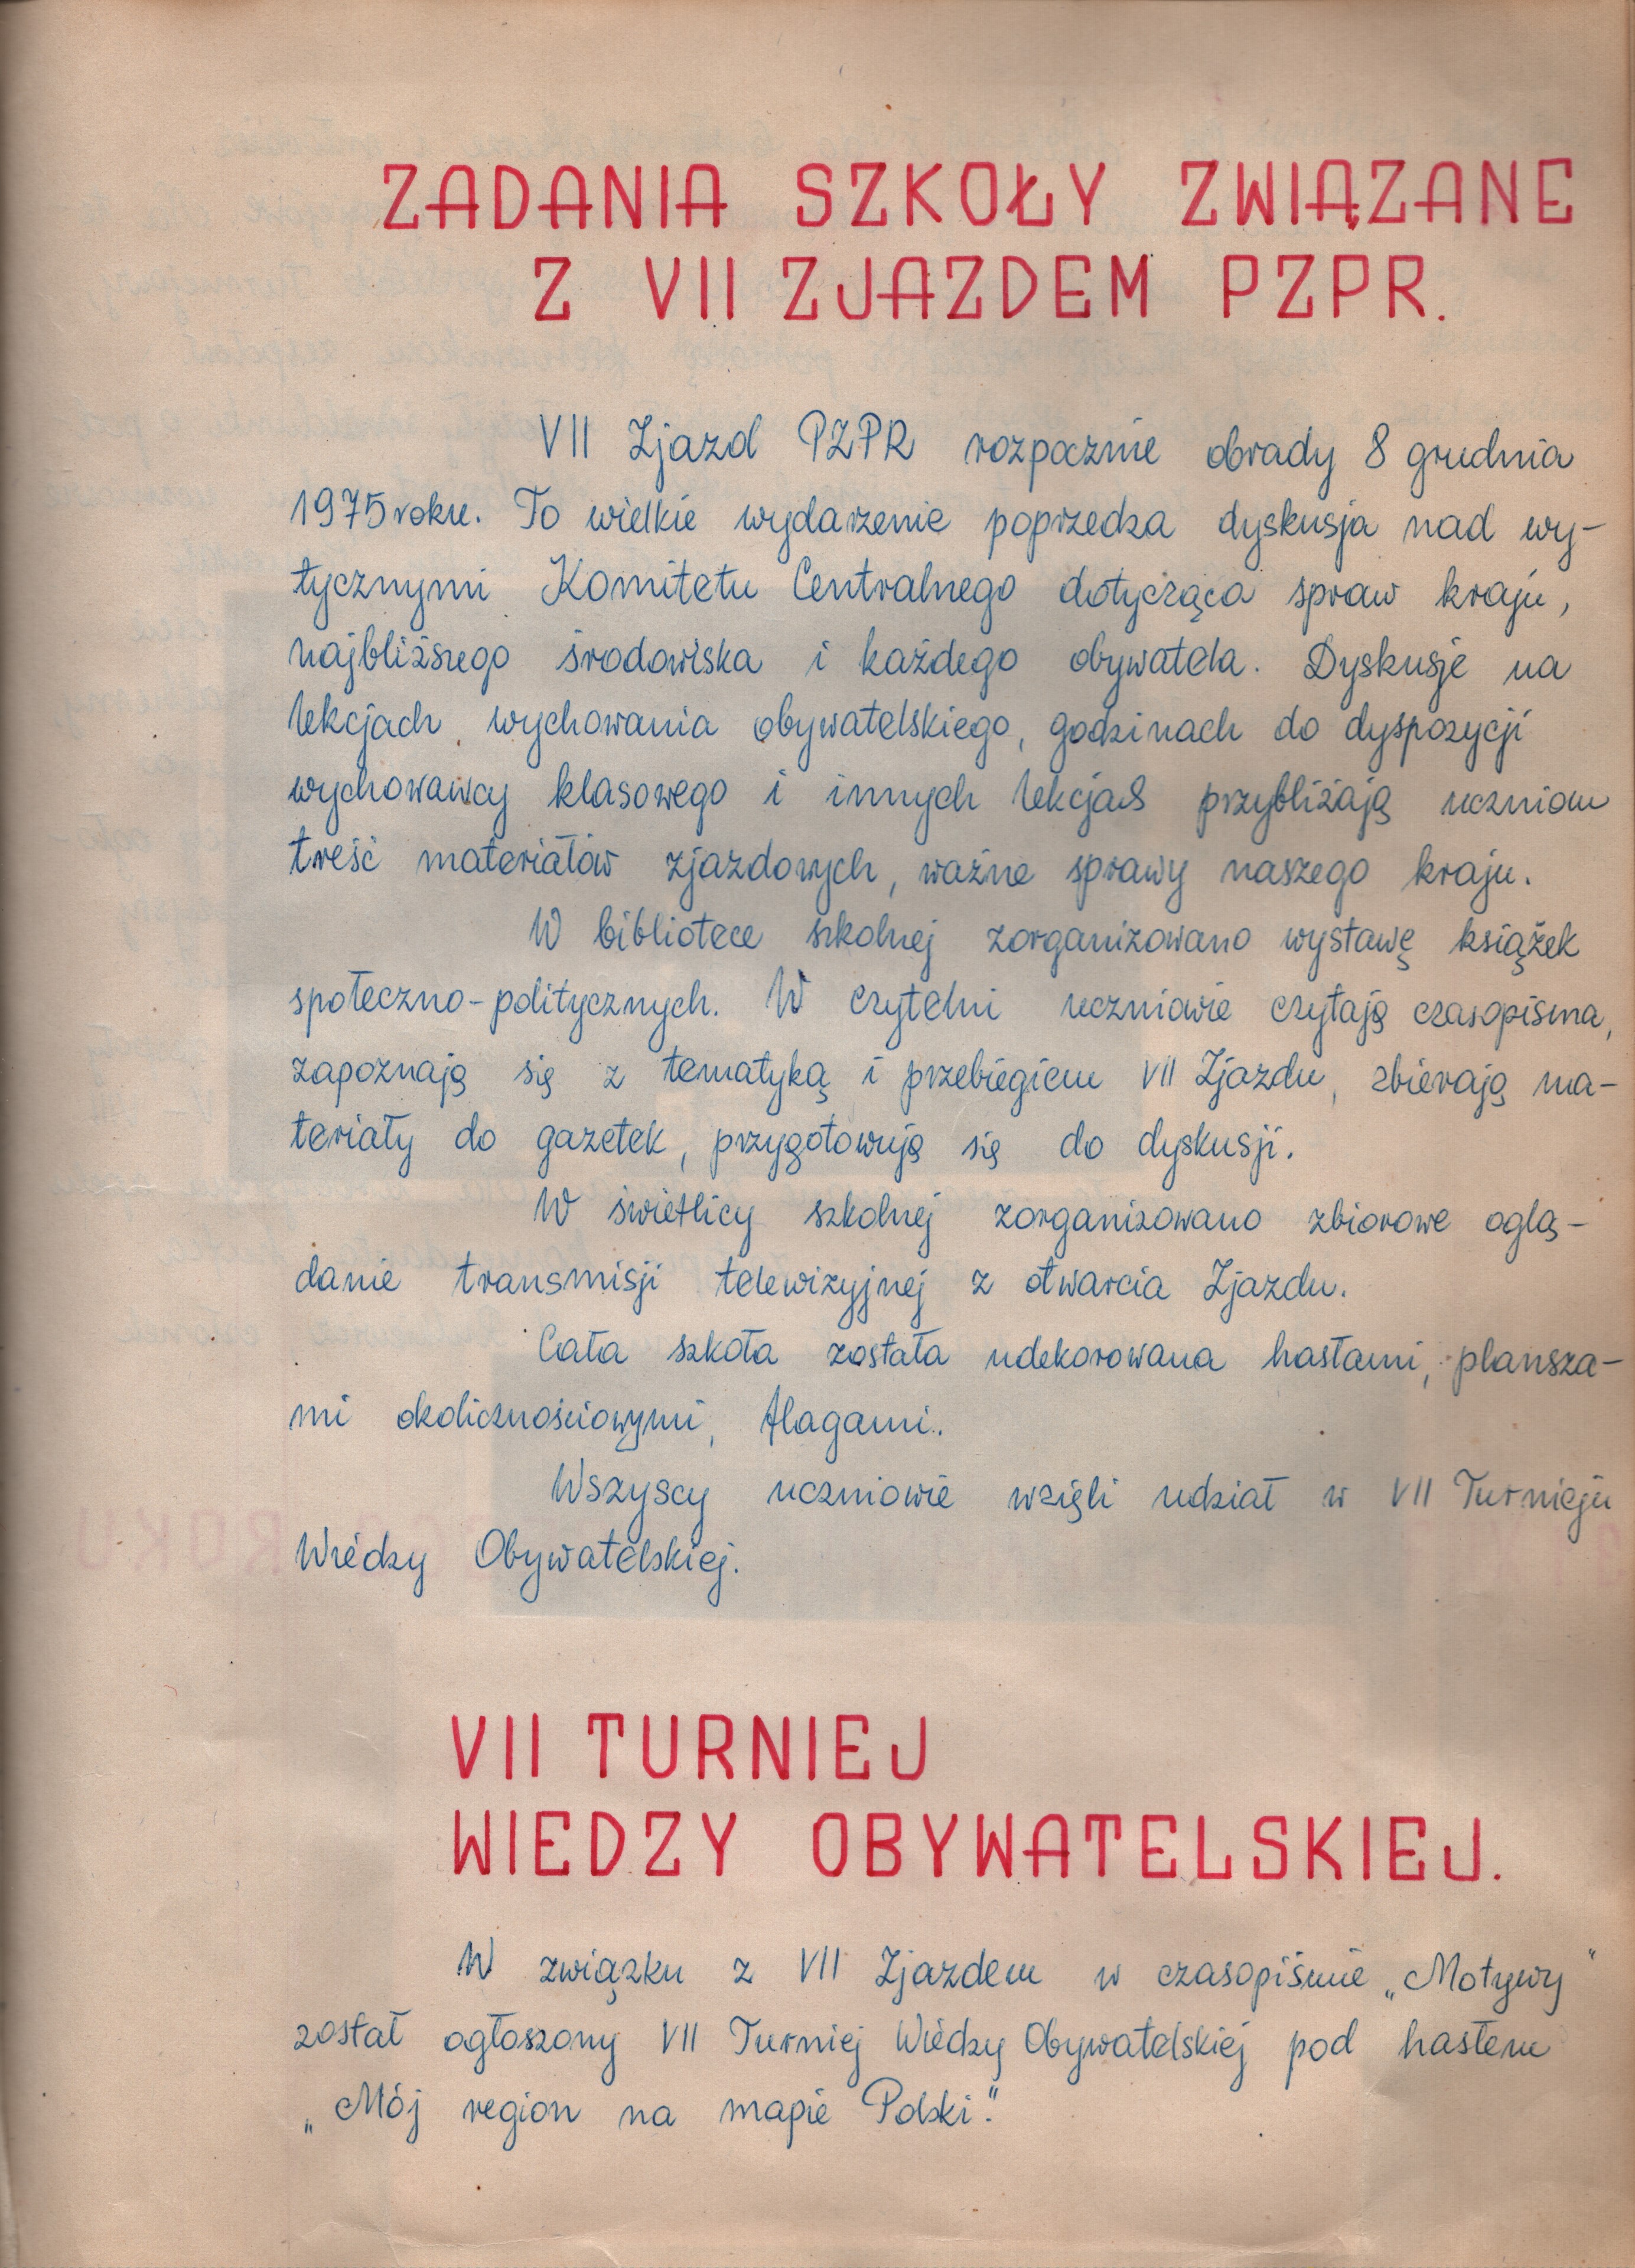 ZADANIA SZKOŁY ZWIĄZANE
Z VII ZJAZDEM PZPR.
VII Zjazd PZPR rozpocznie obrady 8 grudnia
1975 roku. To wielkie wydarzenie poprzedza dyskusja nad wy-
tycznymi Komitetu Centralnego dotycząca spraw kraju,
najbliższego środowiska i każdego obywatela. Dyskusje na
lekcjach wychowania obywatelskiego, godzinach do dyspozycji
wychowawcy klasowego i innych lekcjach przybliżają uczniom
treść materiałów zjazdowych, ważne sprawy naszego kraju.
W bibliotece szkolnej zorganizowano wystawę książek
społeczno-politycznych. W czytelni uczniowie czytają czasopisma,
zapoznają się z tematyką i przebiegiem VII Zjazdu, zbierają ma-
teriały do gazetek, przygotowują się do dyskusji.
W świetlicy szkolnej zorganizowano zbiorowe oglą-
danie transmisji telewizyjnej z otwarcia Zjazdu.
Cała szkoła została udekorowana hasłami, plansza-
mi okolicznościowymi, flagami.
Wszyscy uczniowie wzięli udział w VII Turnieju
Wiedzy Obywatelskiej.
VII TURNIEJ
WIEDZY OBYWATELSKIEJ.
W związku z VII Zjazdem w czasopiśmie „Motywy"
został ogłoszony VII Turniej Wiedzy Obywatelskiej pod hasłem
„Mój region na mapie Polski."